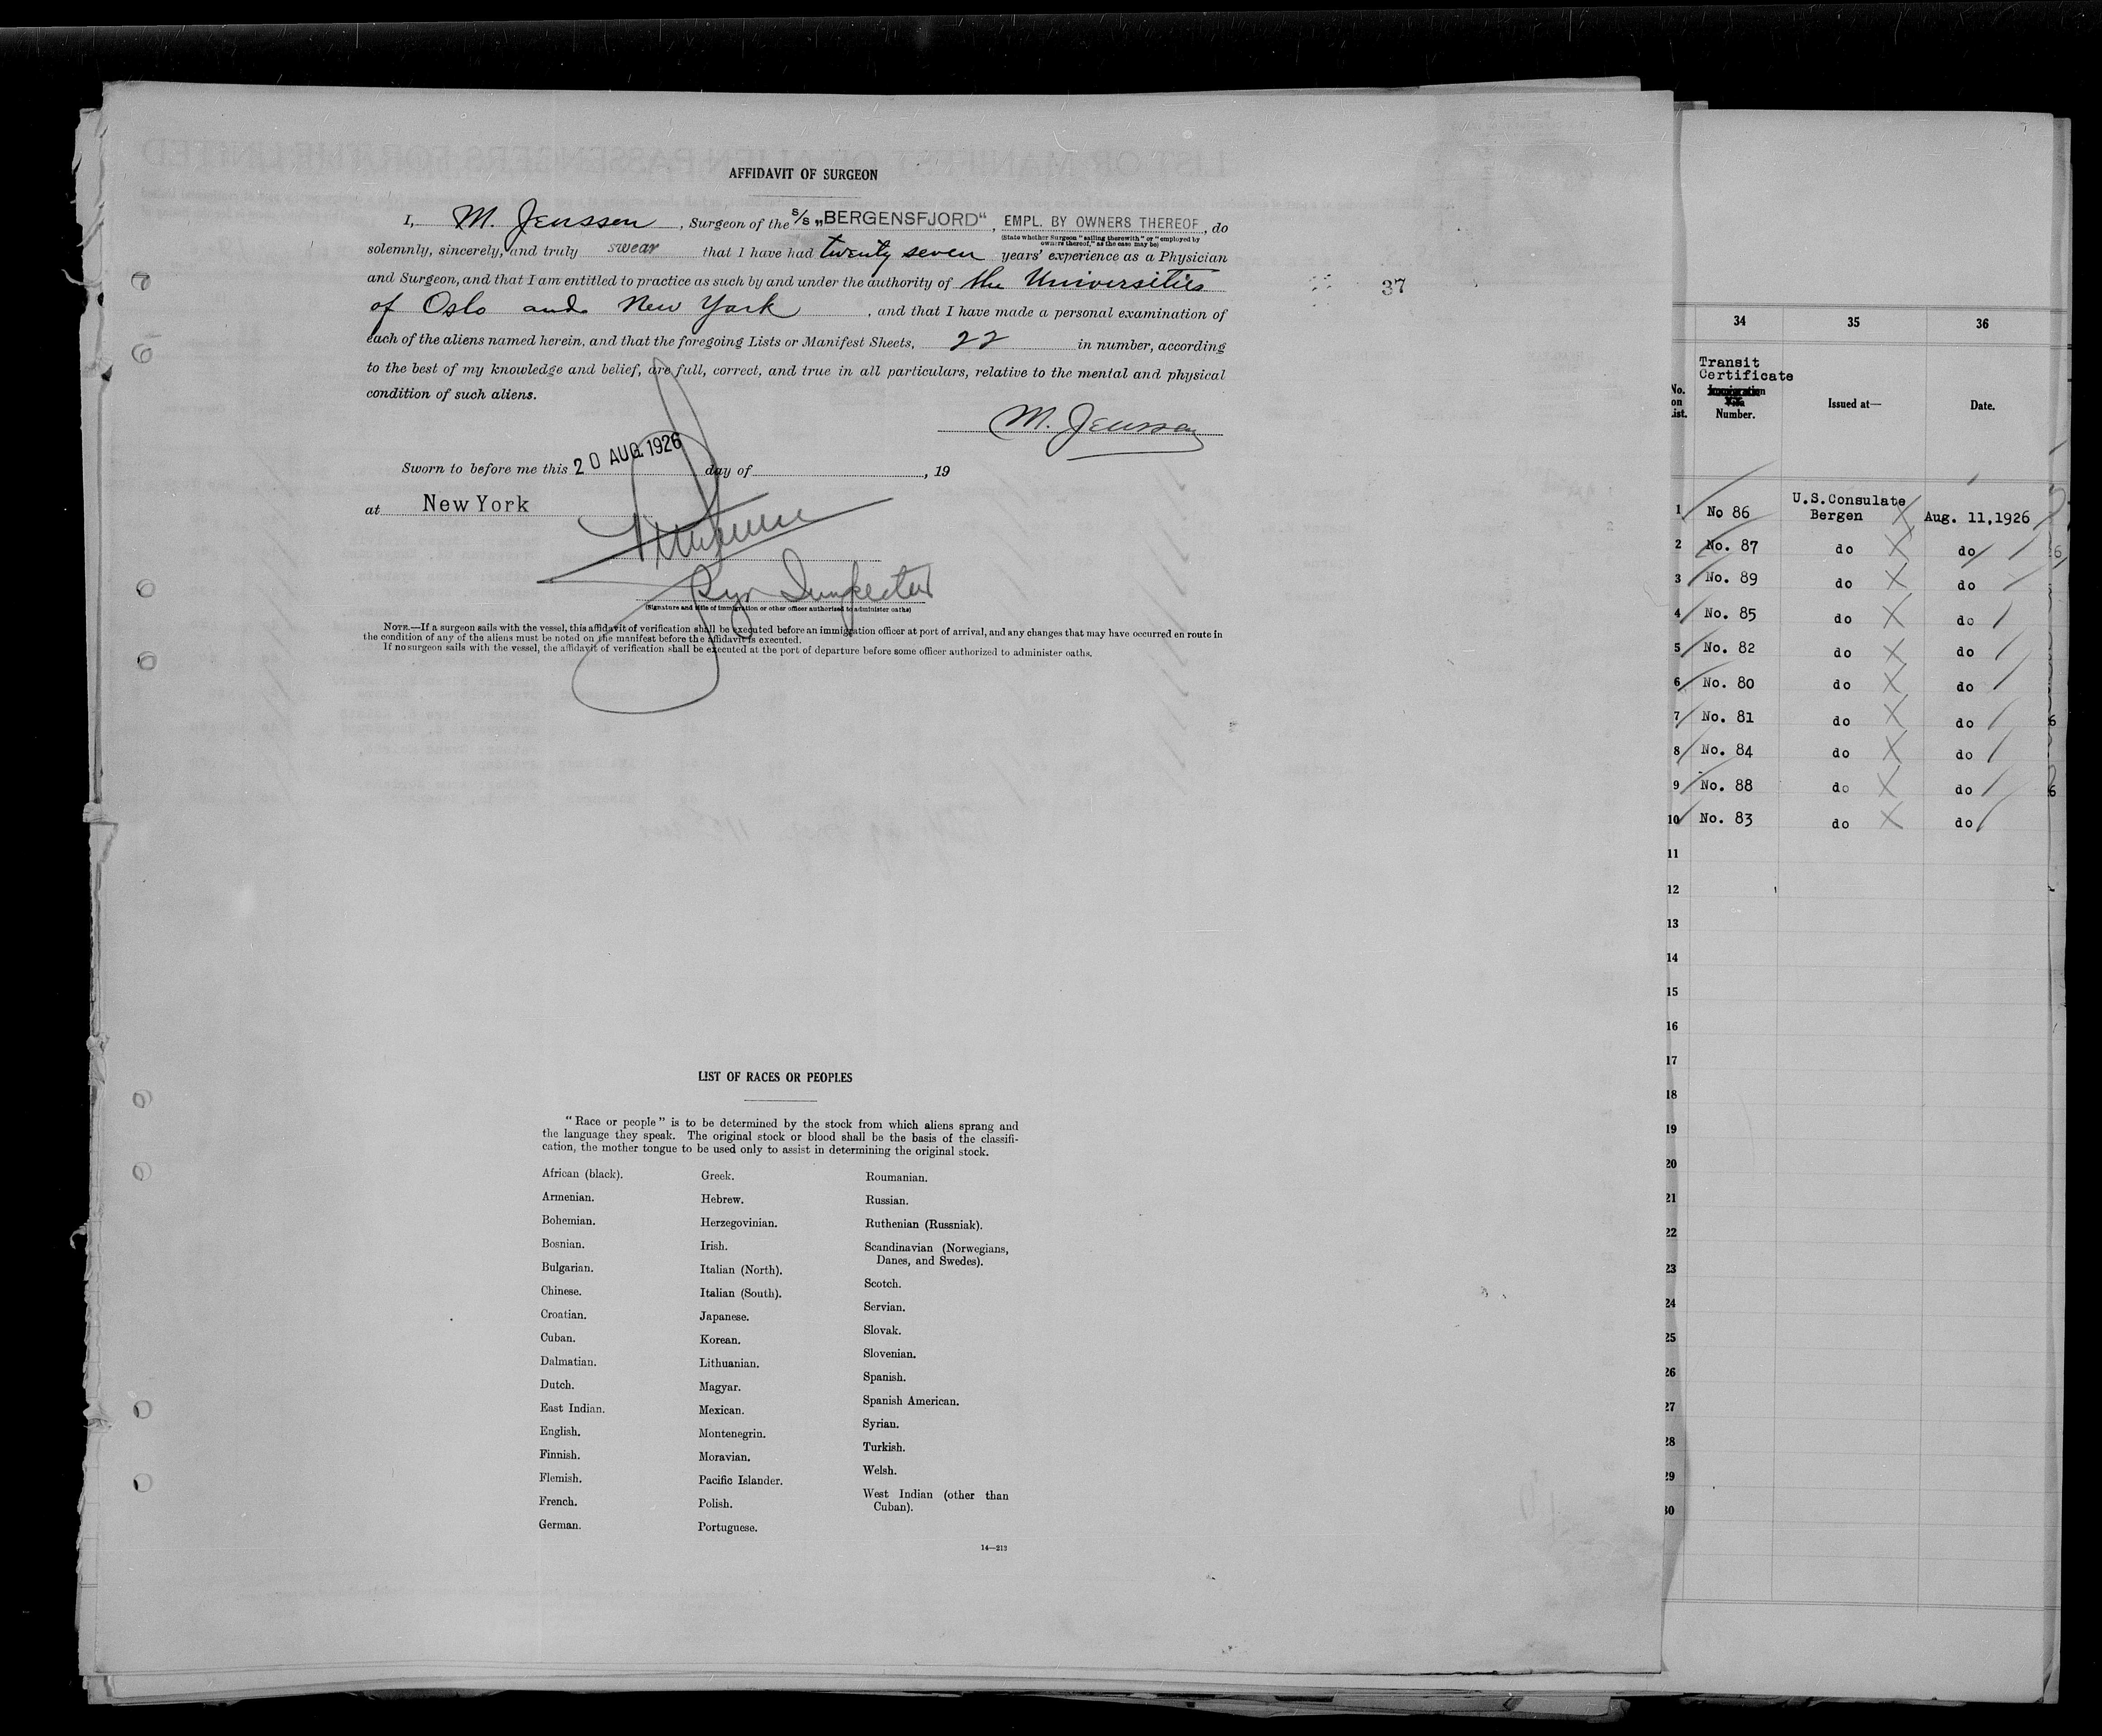 AFFIDAVIT OF SURGEON
I, M. Jenssen, Surgeon of the S/S „BERGENSFJORD“, EMPL. BY OWNERS THEREOF, do
(State whether Surgeon "sailing therewith" or "employed by
owners thereof," as the case may be)
solemnly, sincerely, and truly swear that I have had twenty seven years' experience as a Physician
and Surgeon, and that I am entitled to practice as such by and under the authority of the Universities
of Oslo and New York, and that I have made a personal examination of
each of the aliens named herein, and that the foregoing Lists or Manifest Sheets, 22 in number, according
to the best of my knowledge and belief, are full, correct, and true in all particulars, relative to the mental and physical
condition of such aliens.
M. Jenssen
Sworn to before me this 20 AUG. 1926 day of , 19
at New York
Inspector
(Signature and title of immigration or other officer authorized to administer oaths)
NOTE.—If a surgeon sails with the vessel, this affidavit of verification shall be executed before an immigration officer at port of arrival, and any changes that may have occurred en route in
the condition of any of the aliens must be noted on the manifest before the affidavit is executed.
If no surgeon sails with the vessel, the affidavit of verification shall be executed at the port of departure before some officer authorized to administer oaths.
37
LIST OF RACES OR PEOPLES
"Race or people" is to be determined by the stock from which aliens sprang and
the language they speak. The original stock or blood shall be the basis of the classifi-
cation, the mother tongue to be used only to assist in determining the original stock.
African (black).
Armenian.
Bohemian.
Bosnian.
Bulgarian.
Chinese.
Croatian.
Cuban.
Dalmatian.
Dutch.
East Indian.
English.
Finnish.
Flemish.
French.
German.
Greek.
Hebrew.
Herzegovinian.
Irish.
Italian (North).
Italian (South).
Japanese.
Korean.
Lithuanian.
Magyar.
Mexican.
Montenegrin.
Moravian.
Pacific Islander.
Polish.
Portuguese.
Roumanian.
Russian.
Ruthenian (Russniak).
Scandinavian (Norwegians,
Danes, and Swedes).
Scotch.
Servian.
Slovak.
Slovenian.
Spanish.
Spanish American.
Syrian.
Turkish.
Welsh.
West Indian (other than
Cuban).
14—213
34 35 36
No. on List. Transit Certificate Number. Issued at— Date.
1 No 86 U.S.Consulate Bergen Aug. 11,1926
2 No. 87 do do
3 No. 89 do do
4 No. 85 do do
5 No. 82 do do
6 No. 80 do do
7 No. 81 do do
8 No. 84 do do
9 No. 88 do do
10 No. 83 do do
11
12
13
14
15
16
17
18
19
20
21
22
23
24
25
26
27
28
29
30